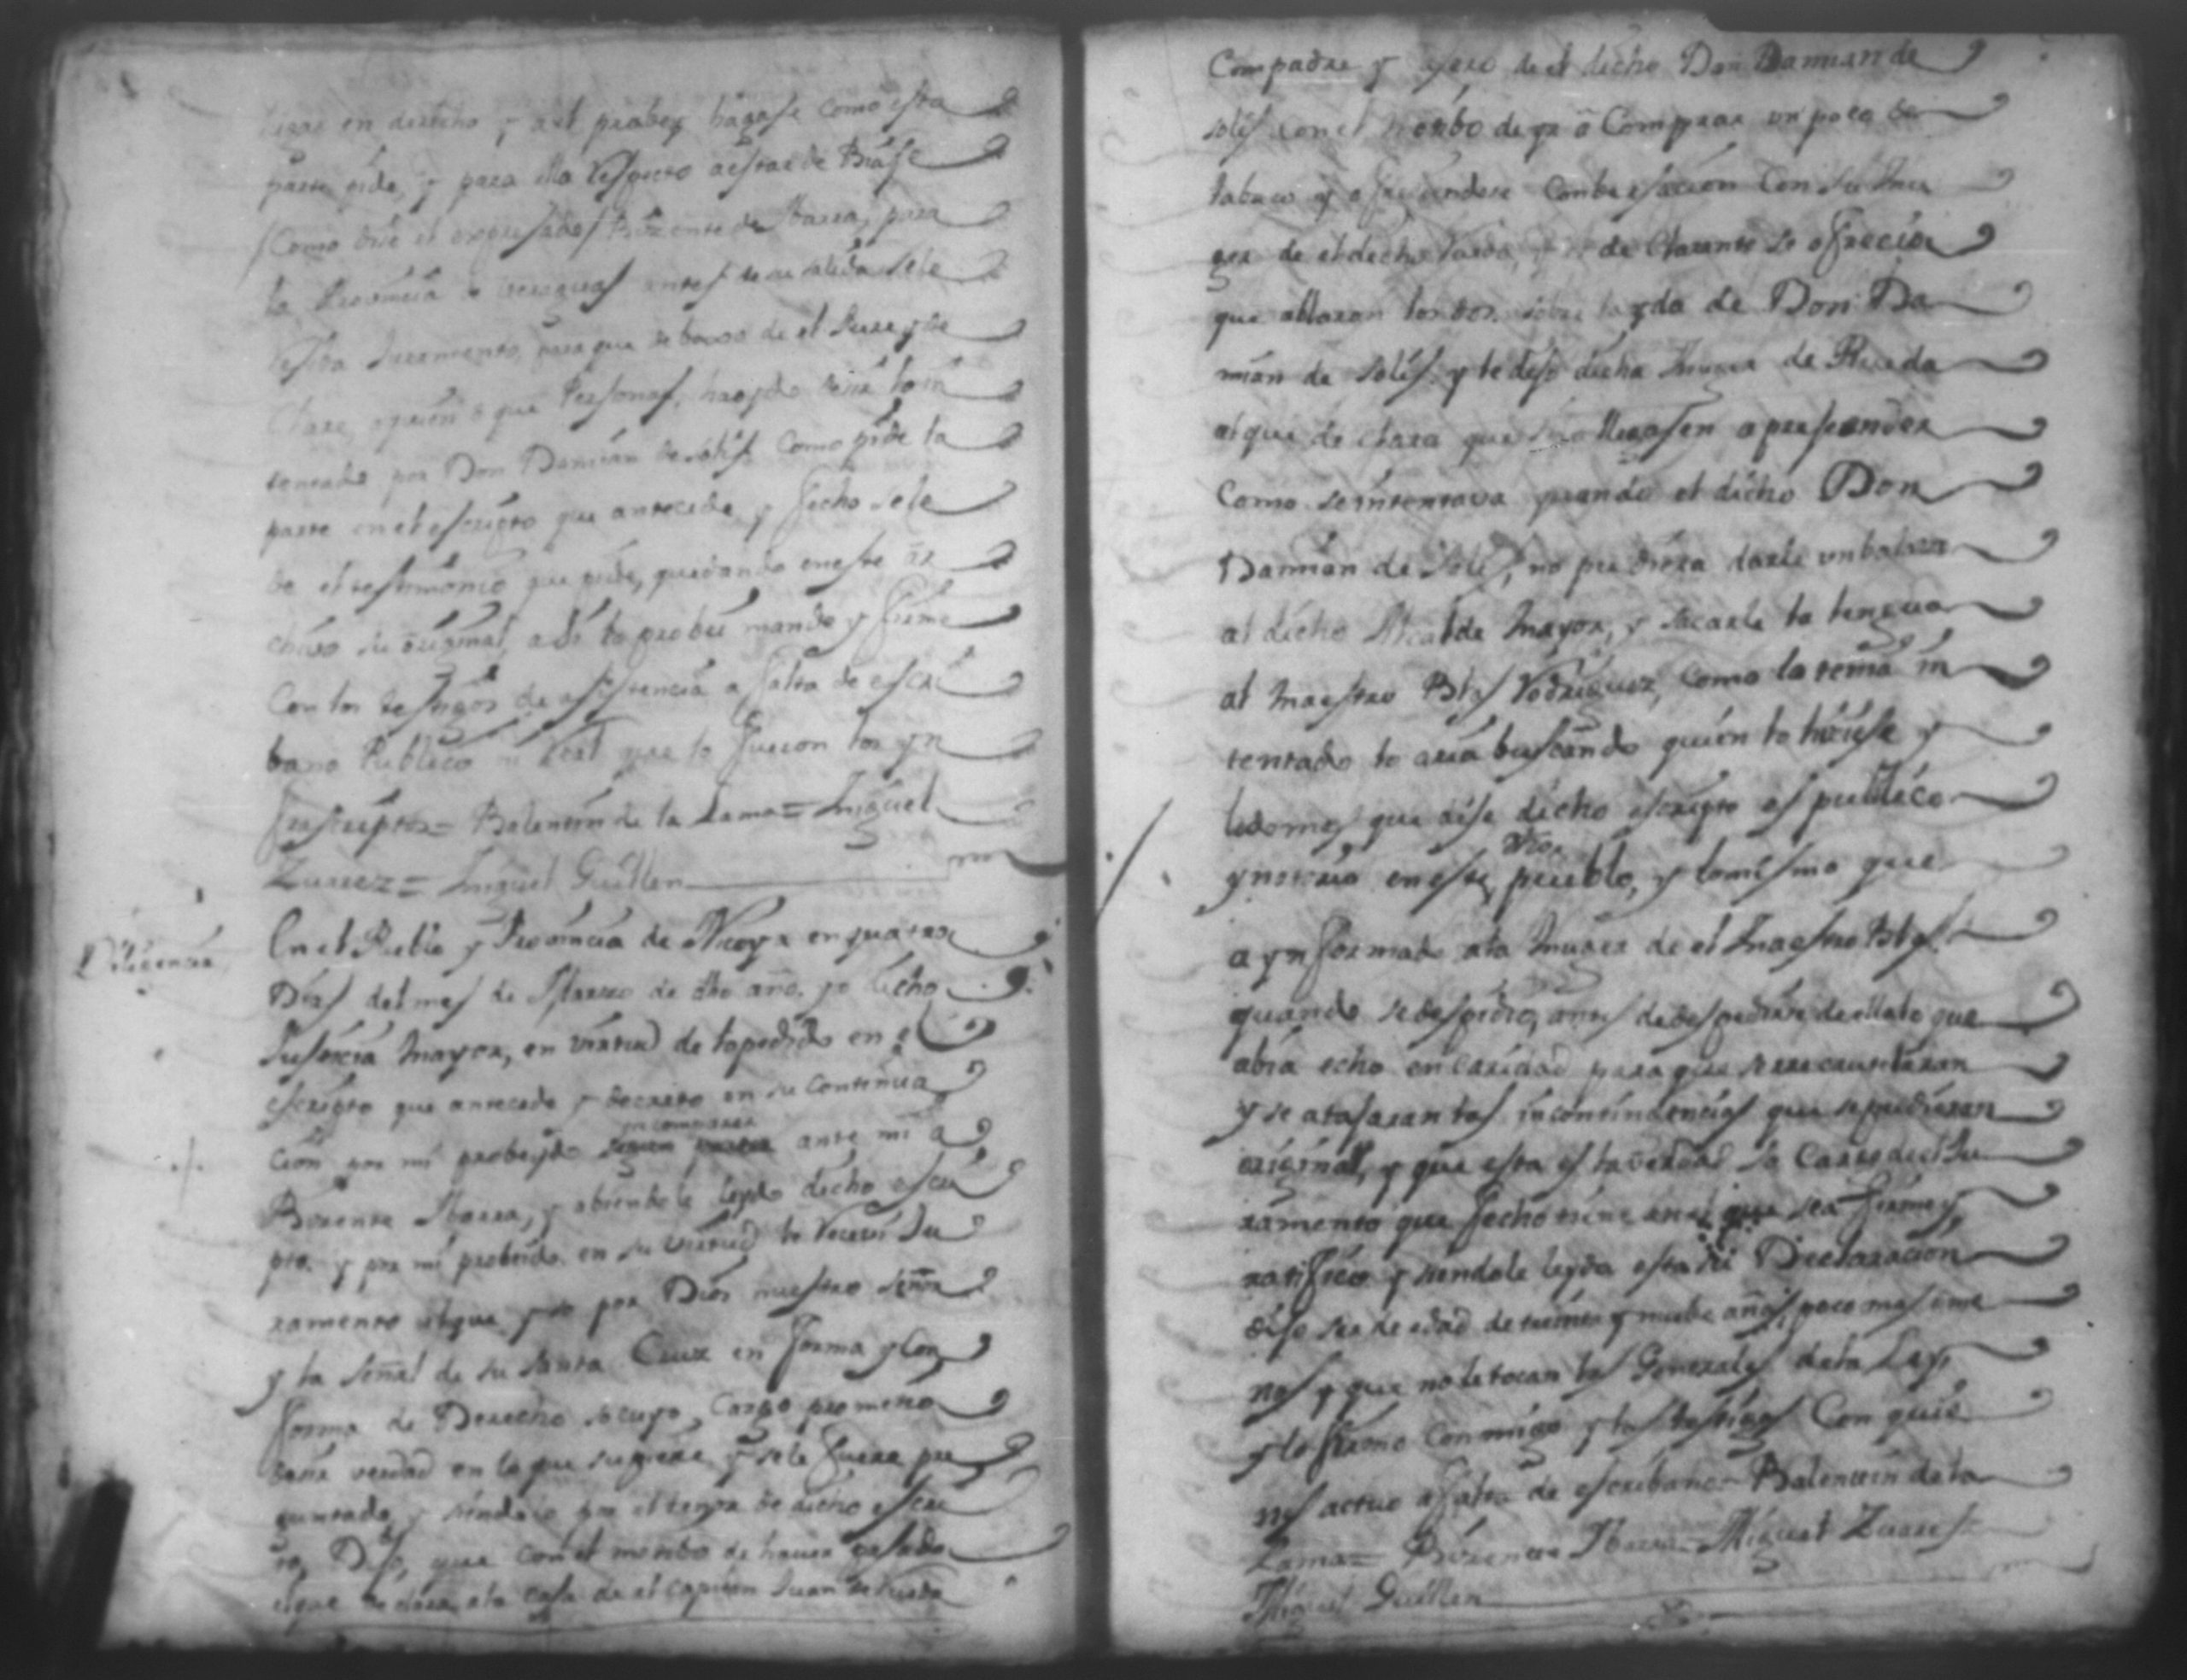 lugar en derecho y asi probey hagase como esta
parte pide, y para ello respecto a estar de Biaje
(Como dise el expresado) Bizente de Ybarra, para
la Provincia de antes de su salida sele
resiba Juramento, para que debaxo de el Jure, y de
Clare, a quien o que Personas, ha oydo desir lo in
tentado por Don Damian de solis, como pide la
parte en el escripto que antecede y fecho sele
de el testimonio que pide, quedando en este ar
chivo su original, asi lo probeí mando y firme
Con los testigos de asistencia a falta de escri
bano Publico ni Real que lo fueron los yn
frascriptos = Balentin de la Lama = Miguel
Zuarez = Miguel Guillen
Diligencia
En el Pueblo y Provincia de Nicoya en quatro
Dias del mes de Marzo de dho año. yo dicho
Justicia Mayor, en virtud de lo pedido en el
escripto que antecede y decreto en su Continua
cion por mi probeydo ante mi a
Bizente Ybarra, y abiendole leydo dicho escri
pto. y por mi probeido en su virtud le Recevi Ju
ramento que yso por Dios nuestro señor
y la señal de su santa Cruz en forma y Con
forme de Derecho so cuyo Cargo prometio
desir verdad en lo que supiere y sele fuere pre
guntado, y siendolo por el tenor de dicho escri
to, Dijo, que con el motibo de haver pasado
el que declara a la casa de el capitan Juan de Rueda
Compadre y de el dicho Don Damian de
solis con el motibo de yr a Comprar un poco de
tabaco y ofreciendose Conbersacion Con su Mu
ger de el dicho de Clarante se ofrecio
que ablaran los dos sobre la yda de Don Da
mian de solis y le dijo dicha Muger de Rueda
al que declara que si no llegasen a prehender
Como se intentava prender el dicho Don
Damian de solis, no pudiera darle un balaso
al dicho Alcalde Mayor, y sacarle la lengua
al Maestro Blas Rodriguez, como lo tenia in
tentado lo avia buscando quien lo hiciese y
lo demas que dise dicho escripto es publico
y notorio en este dho. pueblo, y lo mismo que
a ynformado a la Muger de el Maestro Blas
quando se despidio, antes de despedirse de ella lo que
abia echo en Caridad para que se recautelaran
y se atajaran las incontinencias que se pudieran
original, y que esta es la verdad so Cargo del Ju
ramento que fecho tiene en el que sea firme y
ratifico y siendole leyda esta su Declaracion
dijo ser de edad de treinta y nuebe años, poco mas o me
nos y que no le tocan las Generales de la Ley,
y lo firmo Conmigo y los testigos Con quie
nes actuo a falta de escribano = Balentin de la
Lama = Bizente Ybarra = Miguel Zuares =
Miguel Guillen